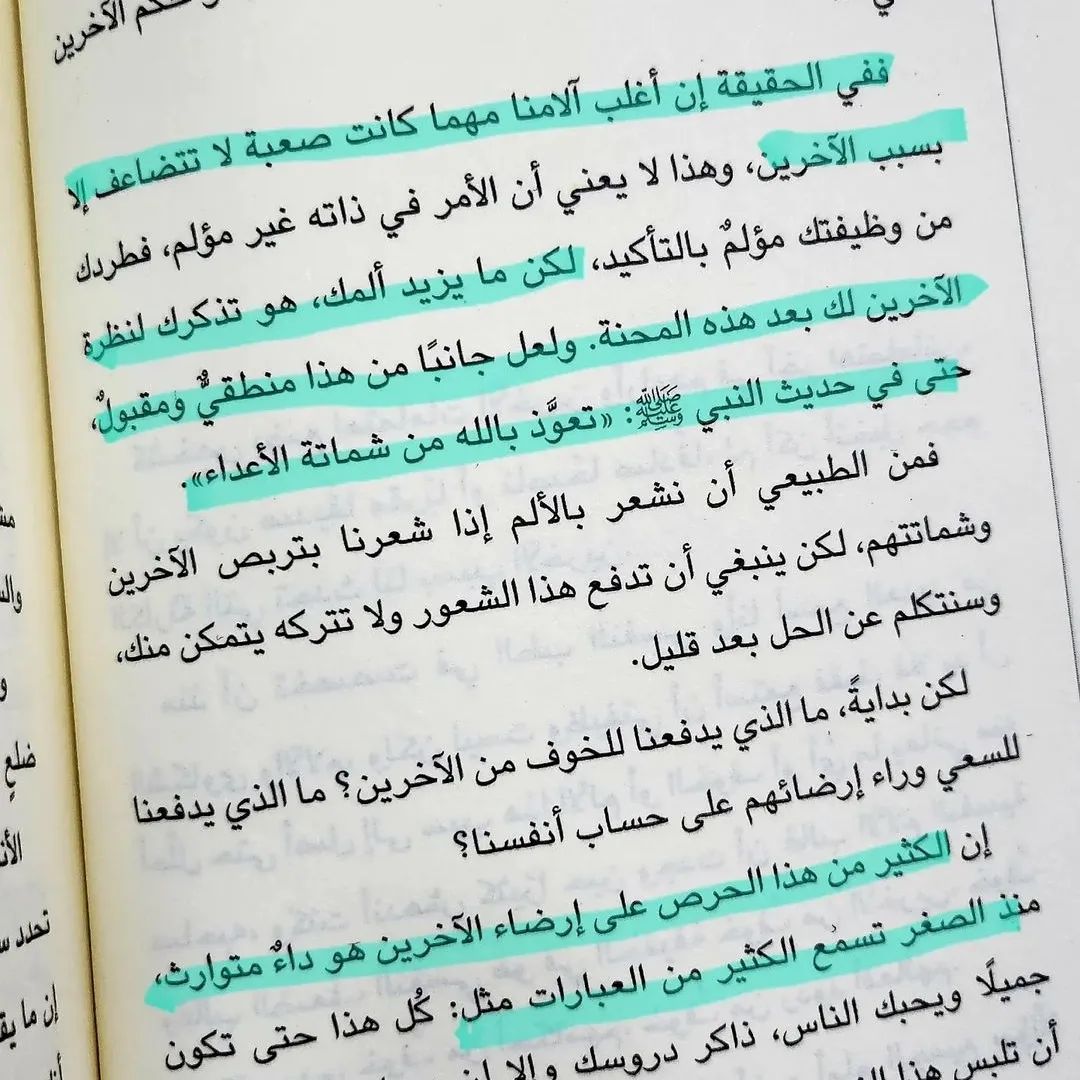 حكم الآخرين
ففي الحقيقة إن أغلب آلامنا مهما كانت صعبة لا تتضاعف إلا
بسبب الآخرين، وهذا لا يعني أن الأمر في ذاته غير مؤلم، فطردك
من وظيفتك مؤلمٌ بالتأكيد، لكن ما يزيد ألمك، هو تذكرك لنظرة
الآخرين لك بعد هذه المحنة. ولعل جانبًا من هذا منطقيٌّ ومقبولٌ،
حتى في حديث النبي ﷺ: «تعوَّذ بالله من شماتة الأعداء».
فمن الطبيعي أن نشعر بالألم إذا شعرنا بتربص الآخرين
وشماتتهم، لكن ينبغي أن تدفع هذا الشعور ولا تتركه يتمكن منك،
وسنتكلم عن الحل بعد قليل.
لكن بدايةً، ما الذي يدفعنا للخوف من الآخرين؟ ما الذي يدفعنا
للسعي وراء إرضائهم على حساب أنفسنا؟
إن الكثير من هذا الحرص على إرضاء الآخرين هو داءٌ متوارث،
منذ الصغر تسمع الكثير من العبارات مثل: كُل هذا حتى تكون
جميلًا ويحبك الناس، ذاكر دروسك وإلا
أن تلبس هذا
ضلع
تحدد
إن ما